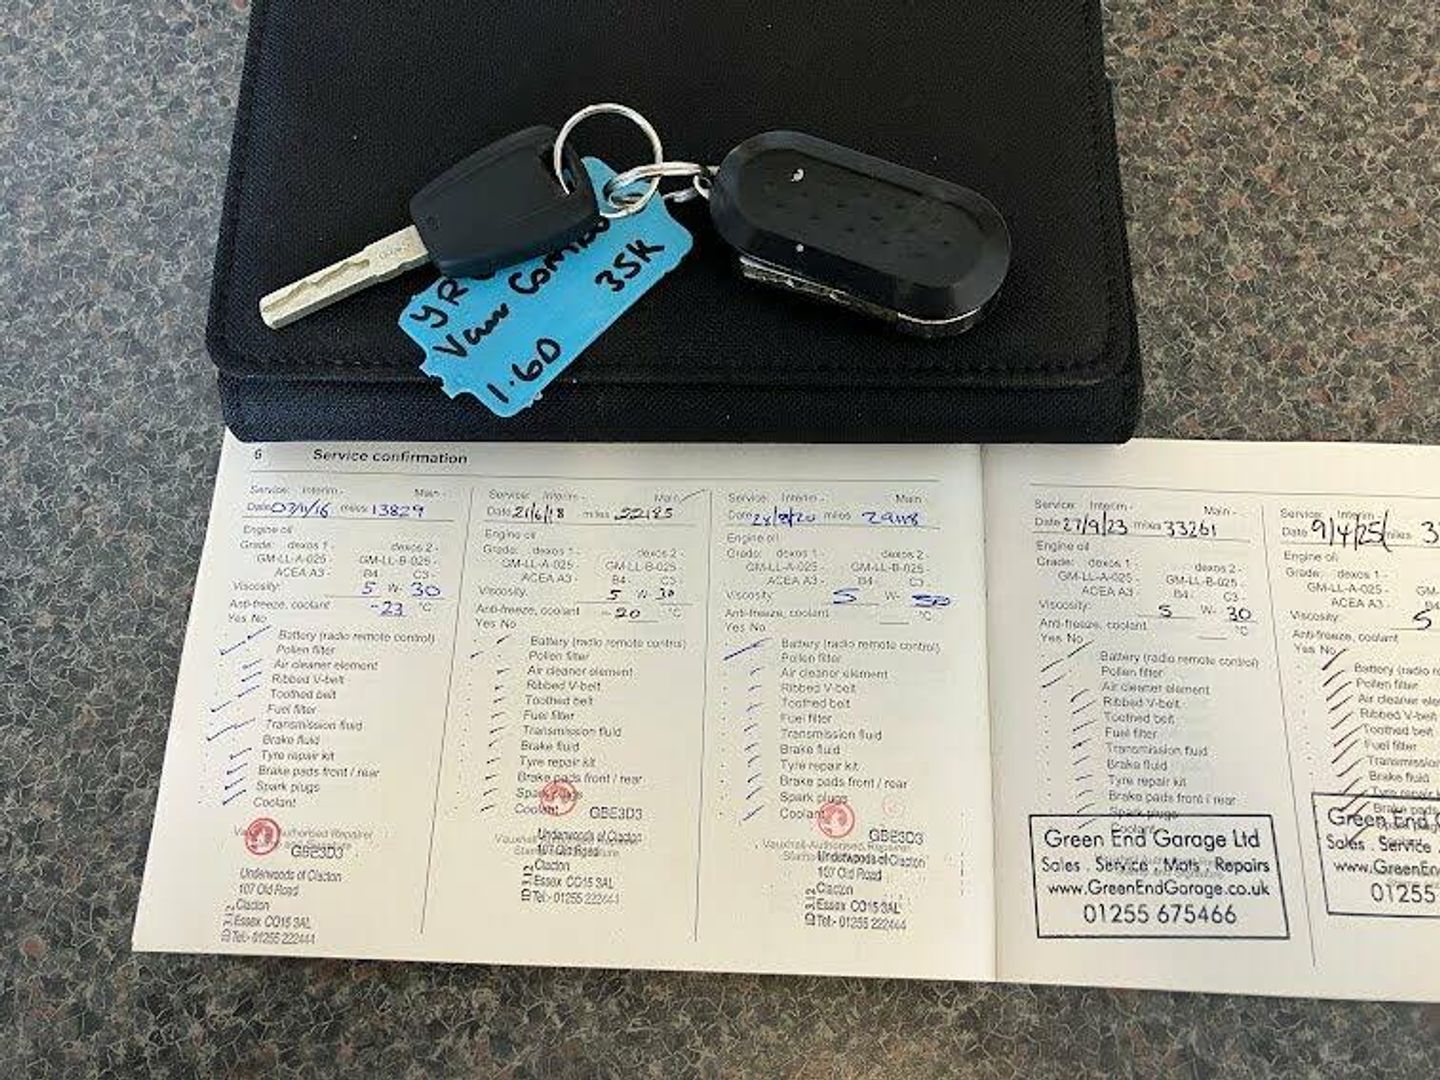 YR
Vaux Combo
35K
1.6D
6 Service confirmation
Service: Interim - Main -
Date 07/11/16 miles 13829
Engine oil
Grade: dexos 1 - dexos 2 -
GM-LL-A-025 - GM-LL-B-025 -
ACEA A3 - B4 C3 -
Viscosity: 5 W- 30
Anti-freeze, coolant -23 °C
Yes No
Battery (radio remote control)
Pollen filter
Air cleaner element
Ribbed V-belt
Toothed belt
Fuel filter
Transmission fluid
Brake fluid
Tyre repair kit
Brake pads front / rear
Spark plugs
Coolant
Authorised Repairer
GBE3D3
Underwoods of Clacton
107 Old Road
Clacton
Essex CO15 3AL
Tel:- 01255 222444
Service: Interim - Main
Date 21/6/18 miles 22185
Engine oil
Grade: dexos 1 - dexos 2 -
GM-LL-A-025 - GM-LL-B-025 -
ACEA A3 - B4 C3 -
Viscosity: 5 W- 30
Anti-freeze, coolant -20 °C
Yes No
Battery (radio remote control)
Pollen filter
Air cleaner element
Ribbed V-belt
Toothed belt
Fuel filter
Transmission fluid
Brake fluid
Tyre repair kit
Brake pads front / rear
Spark plugs
Coolant
GBE3D3
Underwoods of Clacton
107 Old Road
Clacton
Essex CO15 3AL
Tel:- 01255 222444
Service: Interim - Main -
Date miles 29118
Engine oil
Grade: dexos 1 - dexos 2 -
GM-LL-A-025 - GM-LL-B-025 -
ACEA A3 - B4 C3 -
Viscosity: 5 W- 30
Anti-freeze, coolant °C
Yes No
Battery (radio remote control)
Pollen filter
Air cleaner element
Ribbed V-belt
Toothed belt
Fuel filter
Transmission fluid
Brake fluid
Tyre repair kit
Brake pads front / rear
Spark plugs
Coolant
GBE3D3
Vauxhall-Authorised Repairer
Underwoods of Clacton
107 Old Road
Clacton
Essex CO15 3AL
Tel:- 01255 222444
Service: Interim - Main -
Date 27/9/23 miles 33261
Engine oil
Grade: dexos 1 - dexos 2 -
GM-LL-A-025 - GM-LL-B-025 -
ACEA A3 - B4 - C3 -
Viscosity: 5 W- 30
Anti-freeze, coolant °C
Yes No
Battery (radio remote control)
Pollen filter
Air cleaner element
Ribbed V-belt
Toothed belt
Fuel filter
Transmission fluid
Brake fluid
Tyre repair kit
Brake pads front / rear
Spark plugs
Coolant
Green End Garage Ltd
Sales . Service . Mots . Repairs
www.GreenEndGarage.co.uk
01255 675466
Service: Interim -
Date 9/4/25 miles 3
Engine oil
Grade: dexos 1 -
GM-LL-A-025 -
ACEA A3 -
Viscosity: 5
Anti-freeze, coolant
Yes No
Battery (radio
Pollen filter
Air cleaner
Ribbed V-belt
Toothed belt
Fuel filter
Transmission
Brake fluid
Tyre repair
Brake pads
Green End
Sales . Service .
www.GreenEn
01255